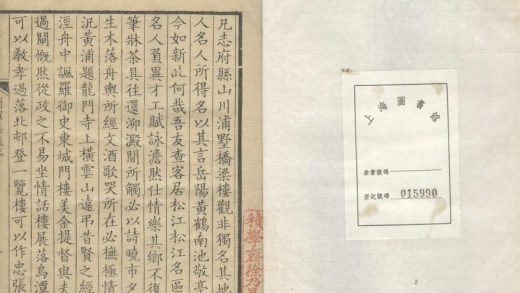 上海圖書館
索書號碼
登記號碼 015990
凡志府縣山川浦墅橋梁樓觀非獨名其地
人名人所得名以其言岳陽黃鶴南池敬亭
今如新此何哉吾友查客居松江松江名區
名人負異才工賦詠澹然仕情樂其鄉不復
筆牀茶具往還泖澱間所觸必以詩曉市夕
生木落舟輿所經文酒歌哭所在必撫極情
況黃浦題龍門寺上橫雲山遠弔昔賢之經
涇舟中諷羅御史東城門樓美金提督與夫
過閘慨然從政之不易坐情話樓展落烏潭
可以教孝過落北邨登一覽樓可以作忠張
積學齋徐乃昌